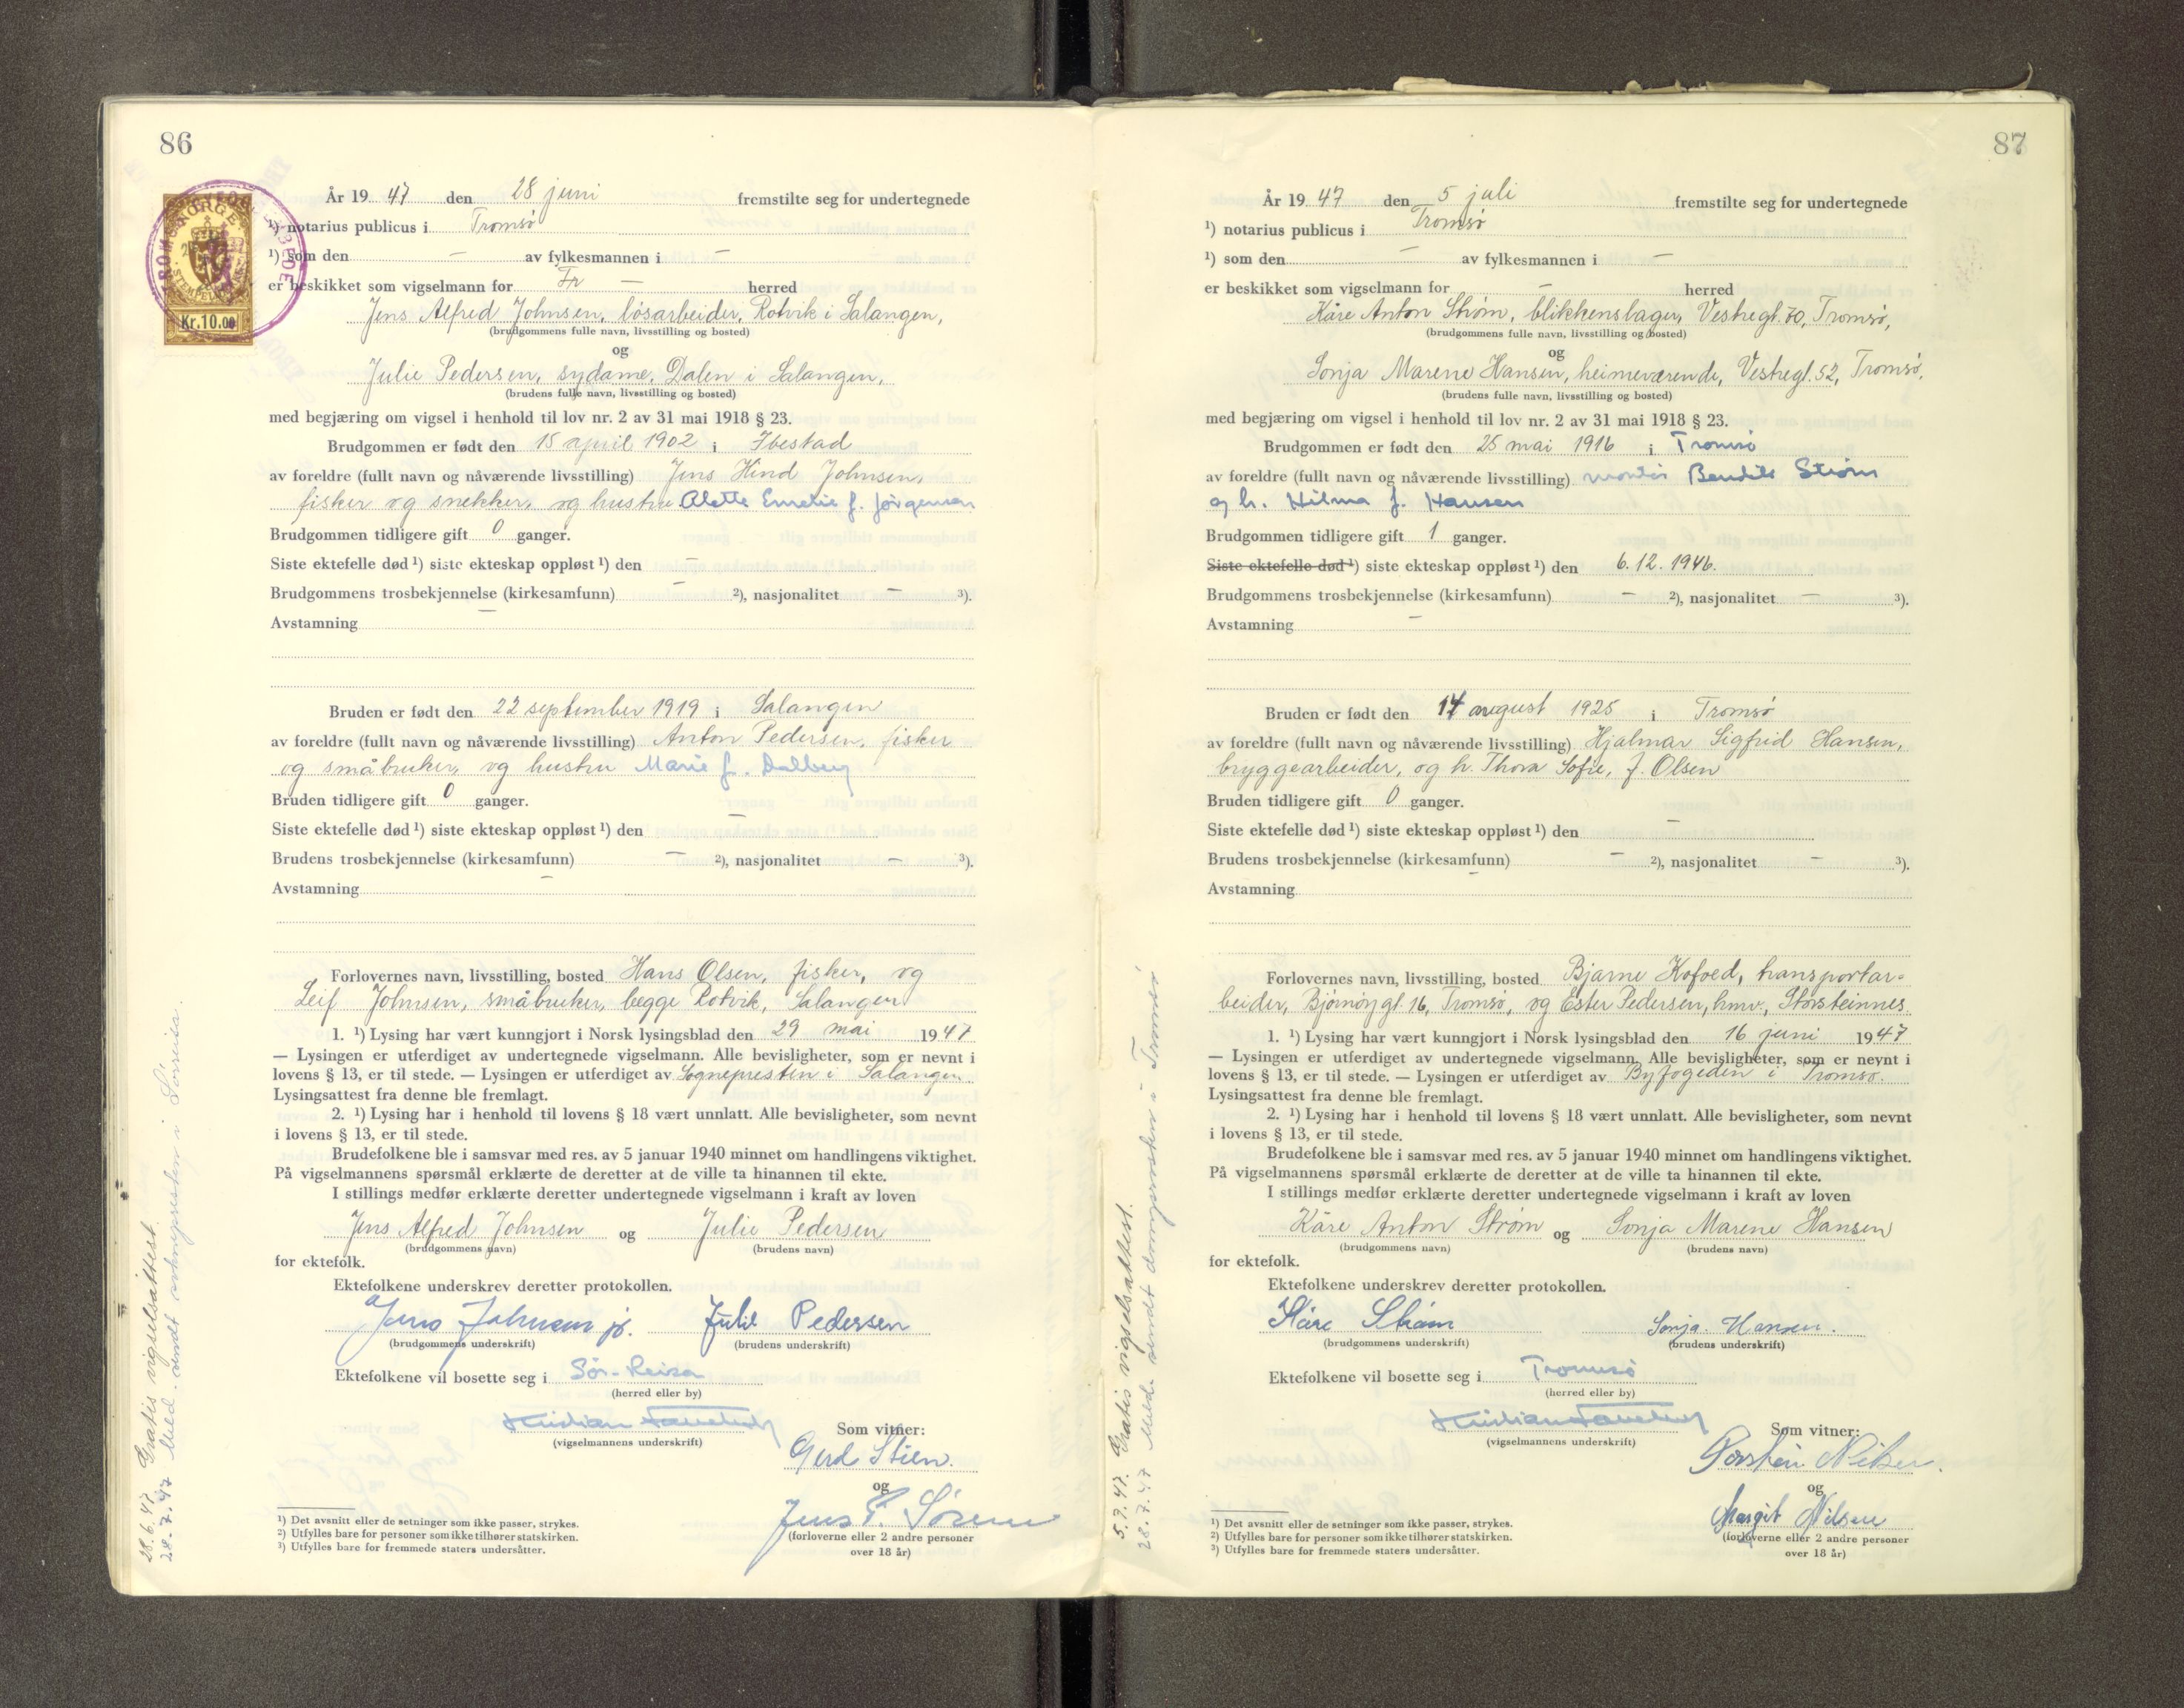 86
År 19 47 den 28 juni fremstilte seg for undertegnede
¹) notarius publicus i Tromsø
¹) som den — av fylkesmannen i —
er beskikket som vigselmann for Fr — herred
Jens Alfred Johnsen, løsarbeider, Rotvik i Salangen,
(brudgommens fulle navn, livsstilling og bosted)
og
Julie Pedersen, sydame, Dalen i Salangen,
(brudens fulle navn, livsstilling og bosted)
med begjæring om vigsel i henhold til lov nr. 2 av 31 mai 1918 § 23.
Brudgommen er født den 15 april 1902 i Ibestad
av foreldre (fullt navn og nåværende livsstilling) Jens Hind Johnsen,
fisker og snekker, og hustru Alette Emelie f. Jørgensen
Brudgommen tidligere gift 0 ganger.
Siste ektefelle død ¹) siste ekteskap oppløst ¹) den —
Brudgommens trosbekjennelse (kirkesamfunn) — ²), nasjonalitet — ³).
Avstamning —
Bruden er født den 22 september 1919 i Salangen
av foreldre (fullt navn og nåværende livsstilling) Anton Pedersen, fisker
og småbruker, og hustru Marie f. Dalberg
Bruden tidligere gift 0 ganger.
Siste ektefelle død ¹) siste ekteskap oppløst ¹) den —
Brudens trosbekjennelse (kirkesamfunn) — ²), nasjonalitet — ³).
Avstamning —
Forlovernes navn, livsstilling, bosted Hans Olsen, fisker, og
Leif Johnsen, småbruker, begge Rotvik, Salangen
1. ¹) Lysing har vært kunngjort i Norsk lysingsblad den 29 mai 1947
— Lysingen er utferdiget av undertegnede vigselmann. Alle bevisligheter, som er nevnt i
lovens § 13, er til stede. — Lysingen er utferdiget av Sognepresten i Salangen
Lysingsattest fra denne ble fremlagt.
2. ¹) Lysing har i henhold til lovens § 18 vært unnlatt. Alle bevisligheter, som nevnt
i lovens § 13, er til stede.
Brudefolkene ble i samsvar med res. av 5 januar 1940 minnet om handlingens viktighet.
På vigselmannens spørsmål erklærte de deretter at de ville ta hinannen til ekte.
I stillings medfør erklærte deretter undertegnede vigselmann i kraft av loven
Jens Alfred Johnsen og Julie Pedersen
(brudgommens navn) (brudens navn)
for ektefolk.
Ektefolkene underskrev deretter protokollen.
Jens Johnsen jr. Julie Pedersen
(brudgommens underskrift) (brudens underskrift)
Ektefolkene vil bosette seg i Sør-Reisa
(herred eller by)
Kristian
(vigselmannens underskrift)
Som vitner:
Gerd Stien.
og
Jens P. Sørensen
(forloverne eller 2 andre personer
over 18 år)
¹) Det avsnitt eller de setninger som ikke passer, strykes.
²) Utfylles bare for personer som ikke tilhører statskirken.
³) Utfylles bare for fremmede staters undersåtter.
28.6.47. Gratis vigselsattest.
28.7.47 Meld. sendt soknepresten i Sørreisa.
NORGE
STEMPEL
Kr.10.00
87
År 19 47 den 5 juli fremstilte seg for undertegnede
¹) notarius publicus i Tromsø
¹) som den — av fylkesmannen i —
er beskikket som vigselmann for — herred
Kåre Anton Strøm, blikkenslager, Vestregt. 70, Tromsø,
(brudgommens fulle navn, livsstilling og bosted)
og
Sonja Marene Hansen, heimeværende, Vestregt. 52, Tromsø.
(brudens fulle navn, livsstilling og bosted)
med begjæring om vigsel i henhold til lov nr. 2 av 31 mai 1918 § 23.
Brudgommen er født den 25 mai 1916 i Tromsø
av foreldre (fullt navn og nåværende livsstilling) montør Bendik Strøm
og h. Hilma f. Hansen
Brudgommen tidligere gift 1 ganger.
Siste ektefelle død ¹) siste ekteskap oppløst ¹) den 6.12.1946.
Brudgommens trosbekjennelse (kirkesamfunn) — ²), nasjonalitet — ³).
Avstamning —
Bruden er født den 14 august 1925 i Tromsø
av foreldre (fullt navn og nåværende livsstilling) Hjalmar Sigfrid Hansen,
bryggearbeider, og h. Thora Sofie, f. Olsen
Bruden tidligere gift 0 ganger.
Siste ektefelle død ¹) siste ekteskap oppløst ¹) den —
Brudens trosbekjennelse (kirkesamfunn) — ²), nasjonalitet — ³).
Avstamning —
Forlovernes navn, livsstilling, bosted Bjarne Kofoed, transportar-
beider, Bjørnøygt. 16, Tromsø, og Ester Pedersen, hmv., Storsteinnes.
1. ¹) Lysing har vært kunngjort i Norsk lysingsblad den 16 juni 1947
— Lysingen er utferdiget av undertegnede vigselmann. Alle bevisligheter, som er nevnt i
lovens § 13, er til stede. — Lysingen er utferdiget av Byfogeden i Tromsø.
Lysingsattest fra denne ble fremlagt.
2. ¹) Lysing har i henhold til lovens § 18 vært unnlatt. Alle bevisligheter, som nevnt
i lovens § 13, er til stede.
Brudefolkene ble i samsvar med res. av 5 januar 1940 minnet om handlingens viktighet.
På vigselmannens spørsmål erklærte de deretter at de ville ta hinannen til ekte.
I stillings medfør erklærte deretter undertegnede vigselmann i kraft av loven
Kåre Anton Strøm og Sonja Marene Hansen
(brudgommens navn) (brudens navn)
for ektefolk.
Ektefolkene underskrev deretter protokollen.
Kåre Strøm Sonja Hansen.
(brudgommens underskrift) (brudens underskrift)
Ektefolkene vil bosette seg i Tromsø
(herred eller by)
Kristian
(vigselmannens underskrift)
Som vitner:
Nilsen.
og
Margit Nilsen
(forloverne eller 2 andre personer
over 18 år)
¹) Det avsnitt eller de setninger som ikke passer, strykes.
²) Utfylles bare for personer som ikke tilhører statskirken.
³) Utfylles bare for fremmede staters undersåtter.
5.7.47. Gratis vigselsattest.
28.7.47 Meld. sendt domprosten i Tromsø